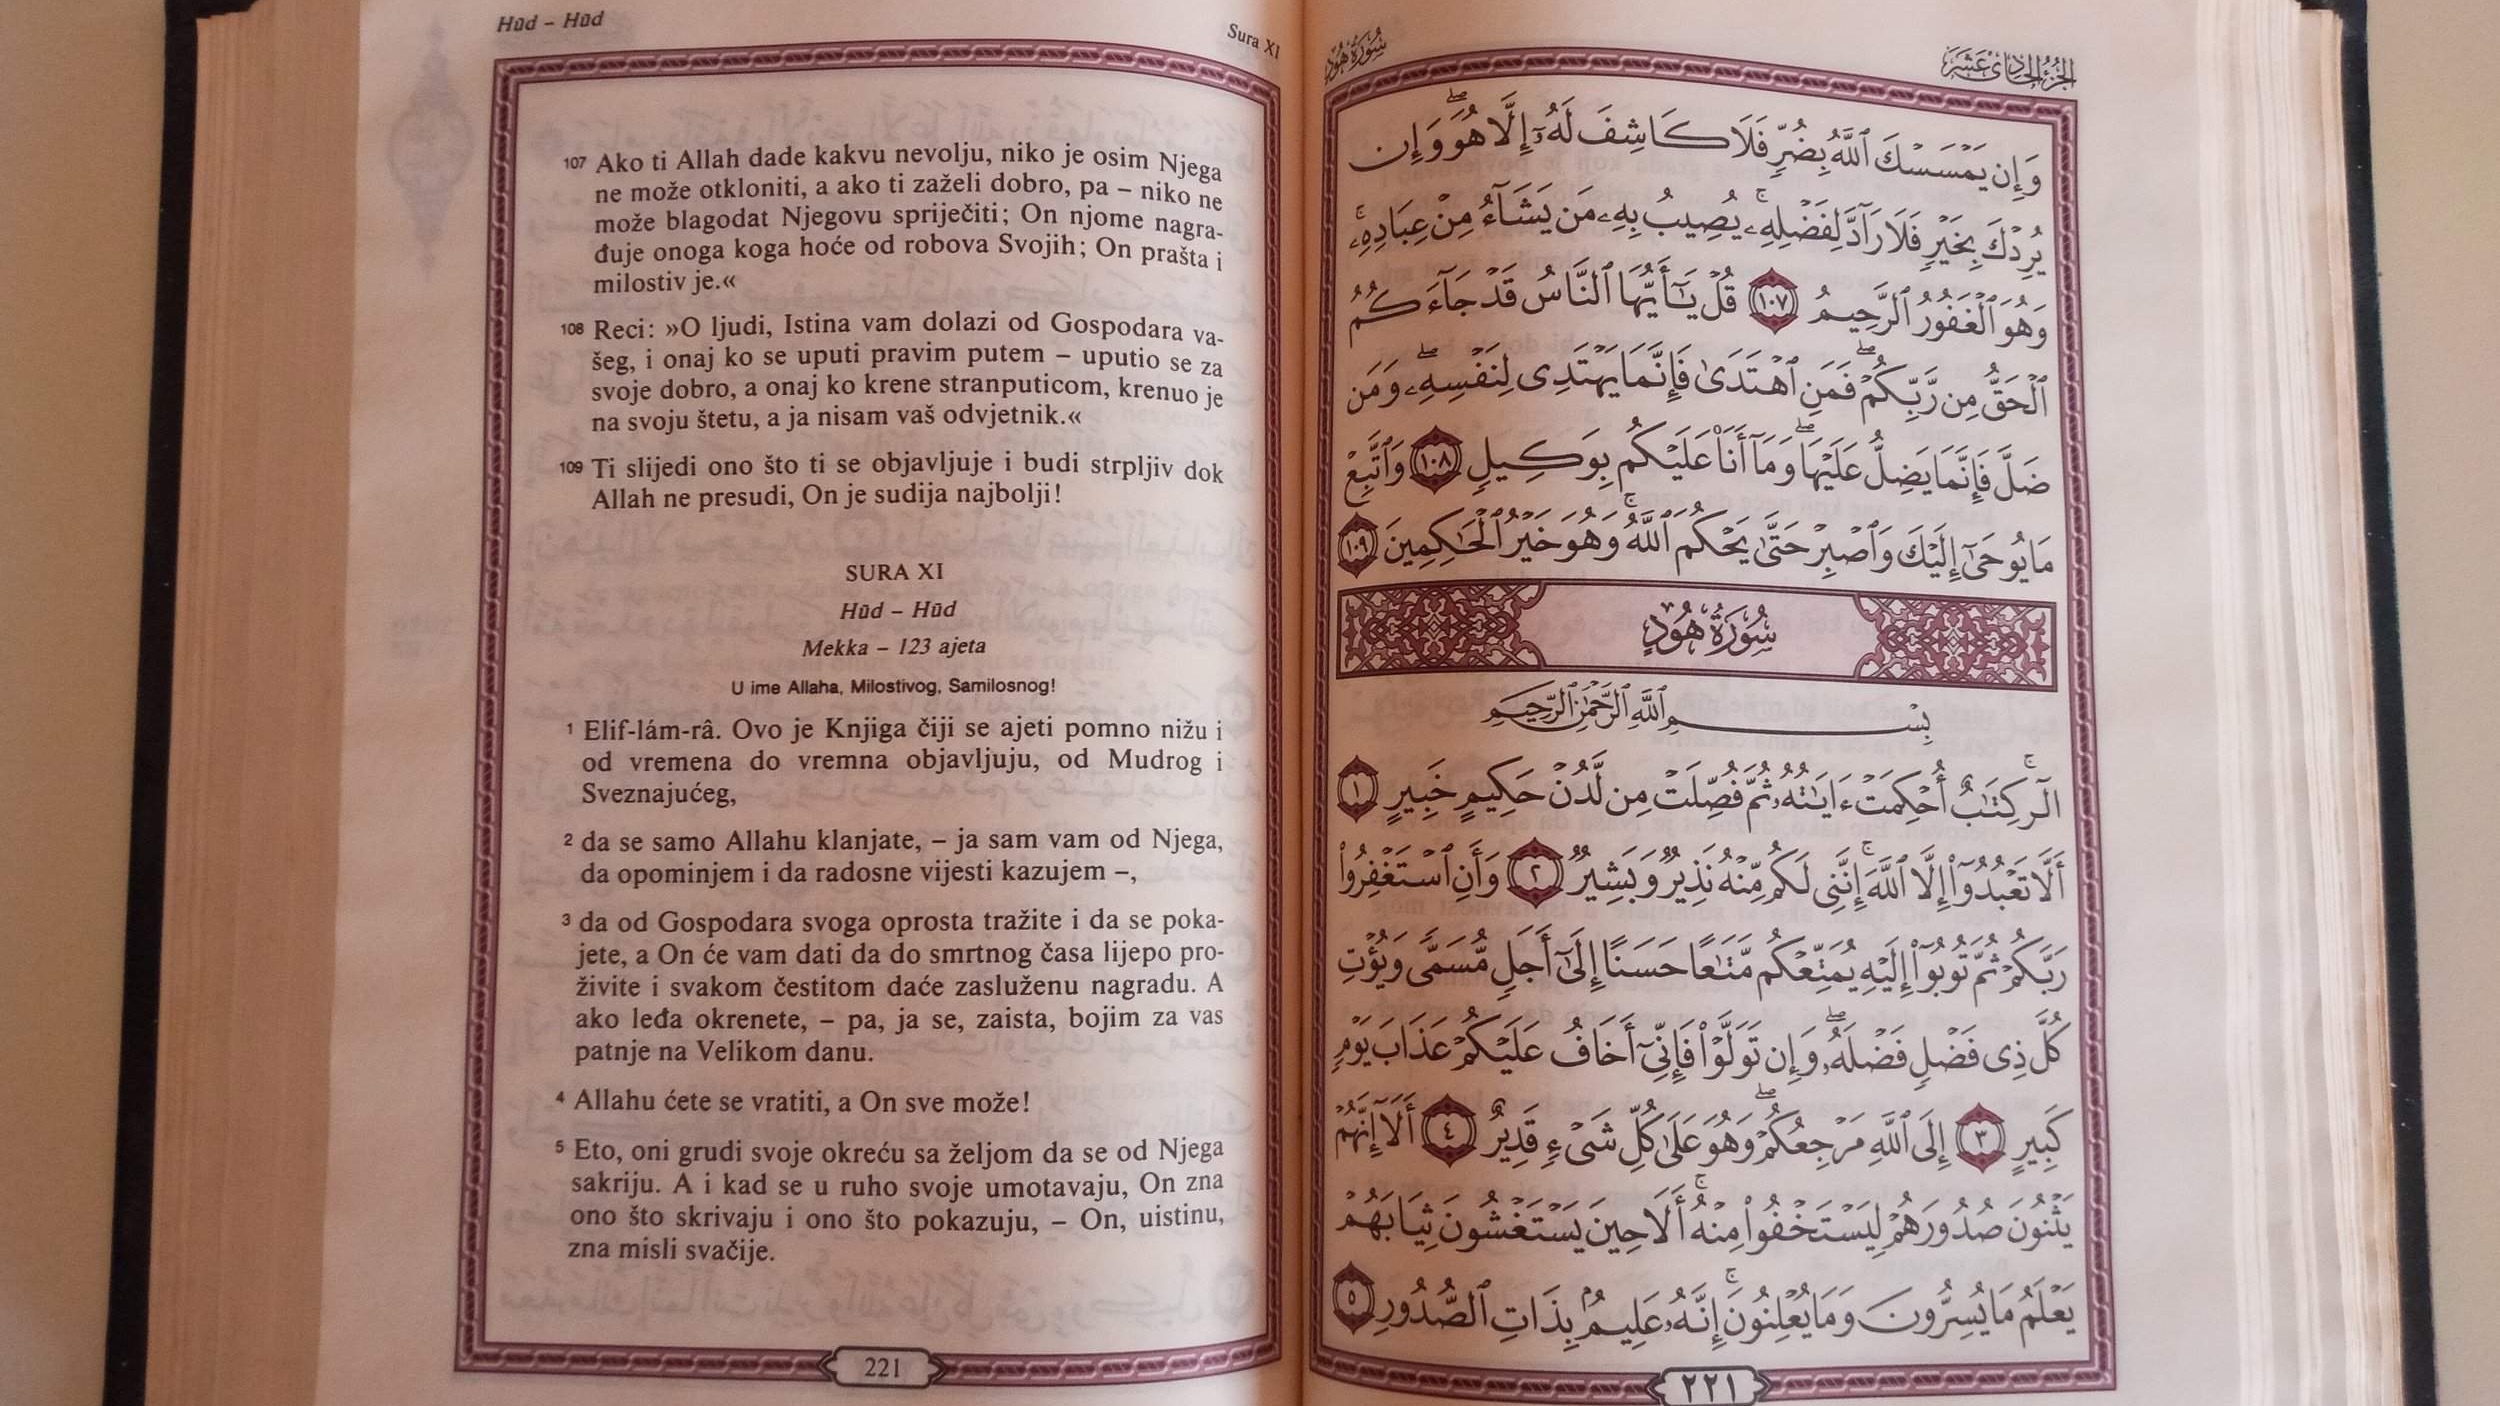 Hūd – Hūd
Sura XI
107 Ako ti Allah dade kakvu nevolju, niko je osim Njega
ne može otkloniti, a ako ti zaželi dobro, pa – niko ne
može blagodat Njegovu spriječiti; On njome nagra-
đuje onoga koga hoće od robova Svojih; On prašta i
milostiv je.«
108 Reci: »O ljudi, Istina vam dolazi od Gospodara va-
šeg, i onaj ko se uputi pravim putem – uputio se za
svoje dobro, a onaj ko krene stranputicom, krenuo je
na svoju štetu, a ja nisam vaš odvjetnik.«
109 Ti slijedi ono što ti se objavljuje i budi strpljiv dok
Allah ne presudi, On je sudija najbolji!
SURA XI
Hūd – Hūd
Mekka – 123 ajeta
U ime Allaha, Milostivog, Samilosnog!
1 Elif-lám-râ. Ovo je Knjiga čiji se ajeti pomno nižu i
od vremena do vremna objavljuju, od Mudrog i
Sveznajućeg,
2 da se samo Allahu klanjate, – ja sam vam od Njega,
da opominjem i da radosne vijesti kazujem –,
3 da od Gospodara svoga oprosta tražite i da se poka-
jete, a On će vam dati da do smrtnog časa lijepo pro-
živite i svakom čestitom daće zasluženu nagradu. A
ako leđa okrenete, – pa, ja se, zaista, bojim za vas
patnje na Velikom danu.
4 Allahu ćete se vratiti, a On sve može!
5 Eto, oni grudi svoje okreću sa željom da se od Njega
sakriju. A i kad se u ruho svoje umotavaju, On zna
ono što skrivaju i ono što pokazuju, – On, uistinu,
zna misli svačije.
221
الجُزْءُ الحَادِيْ عَشَرَ
سُورَةُ هُودٍ
وَإِن يَمْسَسْكَ ٱللَّهُ بِضُرٍّ فَلَا كَاشِفَ لَهُۥٓ إِلَّا هُوَۖ وَإِن
يُرِدْكَ بِخَيْرٍ فَلَا رَآدَّ لِفَضْلِهِۦۚ يُصِيبُ بِهِۦ مَن يَشَآءُ مِنْ عِبَادِهِۦۚ
وَهُوَ ٱلْغَفُورُ ٱلرَّحِيمُ ١٠٧ قُلْ يَـٰٓأَيُّهَا ٱلنَّاسُ قَدْ جَآءَكُمُ
ٱلْحَقُّ مِن رَّبِّكُمْۖ فَمَنِ ٱهْتَدَىٰ فَإِنَّمَا يَهْتَدِى لِنَفْسِهِۦۖ وَمَن
ضَلَّ فَإِنَّمَا يَضِلُّ عَلَيْهَاۖ وَمَآ أَنَا۠ عَلَيْكُم بِوَكِيلٍ ١٠٨ وَٱتَّبِعْ
مَا يُوحَىٰٓ إِلَيْكَ وَٱصْبِرْ حَتَّىٰ يَحْكُمَ ٱللَّهُۚ وَهُوَ خَيْرُ ٱلْحَـٰكِمِينَ ١٠٩
سُورَةُ هُودٍ
بِسْمِ ٱللَّهِ ٱلرَّحْمَـٰنِ ٱلرَّحِيمِ
الٓرۚ كِتَـٰبٌ أُحْكِمَتْ ءَايَـٰتُهُۥ ثُمَّ فُصِّلَتْ مِن لَّدُنْ حَكِيمٍ خَبِيرٍ ١
أَلَّا تَعْبُدُوٓا۟ إِلَّا ٱللَّهَۚ إِنَّنِى لَكُم مِّنْهُ نَذِيرٌ وَبَشِيرٌ ٢ وَأَنِ ٱسْتَغْفِرُوا۟
رَبَّكُمْ ثُمَّ تُوبُوٓا۟ إِلَيْهِ يُمَتِّعْكُم مَّتَـٰعًا حَسَنًا إِلَىٰٓ أَجَلٍ مُّسَمًّى وَيُؤْتِ
كُلَّ ذِى فَضْلٍ فَضْلَهُۥۖ وَإِن تَوَلَّوْا۟ فَإِنِّىٓ أَخَافُ عَلَيْكُمْ عَذَابَ يَوْمٍ
كَبِيرٍ ٣ إِلَى ٱللَّهِ مَرْجِعُكُمْۖ وَهُوَ عَلَىٰ كُلِّ شَىْءٍ قَدِيرٌ ٤ أَلَآ إِنَّهُمْ
يَثْنُونَ صُدُورَهُمْ لِيَسْتَخْفُوا۟ مِنْهُۚ أَلَا حِينَ يَسْتَغْشُونَ ثِيَابَهُمْ
يَعْلَمُ مَا يُسِرُّونَ وَمَا يُعْلِنُونَۚ إِنَّهُۥ عَلِيمٌۢ بِذَاتِ ٱلصُّدُورِ ٥
٢٢١